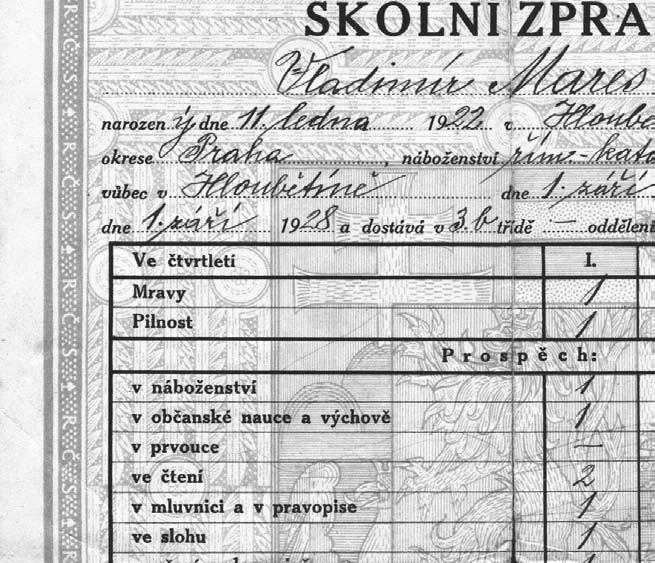 ŠKOLNÍ ZPRÁ
Vladimír Mareš
narozen ý dne 11. ledna 1922 v Hloubě
okrese Praha, náboženství řím.-kato
vůbec v Hloubětíně dne 1. září
dne 1. září 1928 a dostává v 3.b třídě — oddělení
Ve čtvrtletí I.
Mravy 1
Pilnost 1
Prospěch:
v náboženství 1
v občanské nauce a výchově 1
v prvouce —
ve čtení 2
v mluvnici a v pravopise 1
ve slohu 1
RČS RČS RČS RČS